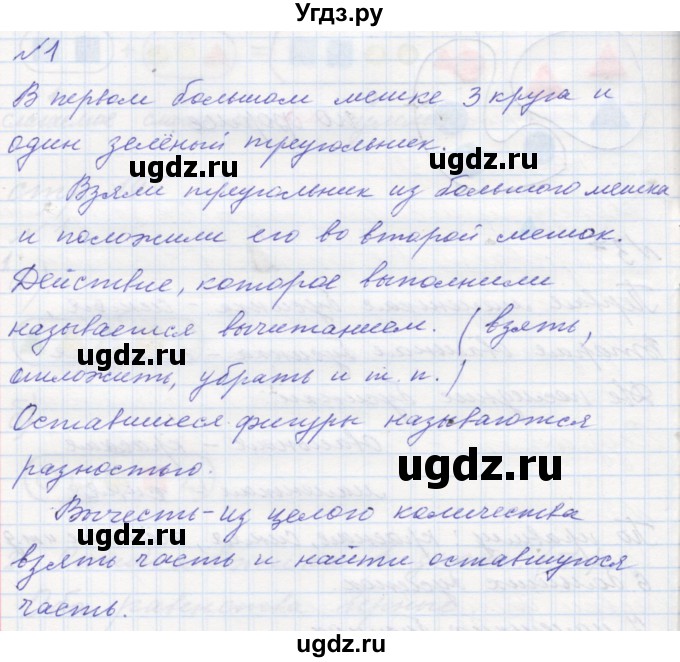 Угдз.ру
№1
В первом большом мешке 3 круга и
один зелёный треугольник.
ugdz.ru
ugdz.ru
Взяли треугольник из большого мешка
и положили его во второй мешок.
Действие, которое выполнили
называется вычитанием. (взять,
ugdz.ru
отложить, убрать и т. п.)
Оставшиеся фигуры называются
ugdz.ru
разностью.
Вычесть - из целого количества
ugdz.ru
ugdz.ru
взять часть и найти оставшуюся
часть.
ugdz.ru